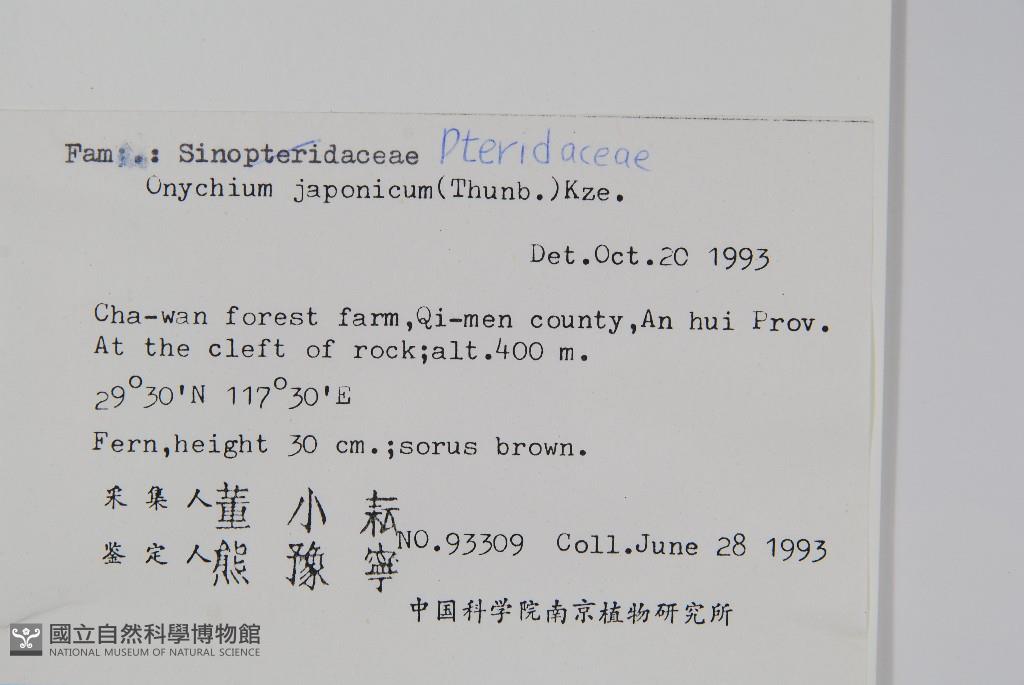 Fam:.: Sinopteridaceae Pteridaceae
Onychium japonicum(Thunb.)Kze.
Det.Oct.20 1993
Cha-wan forest farm,Qi-men county,An hui Prov.
At the cleft of rock;alt.400 m.
29°30'N 117°30'E
Fern,height 30 cm.;sorus brown.
采集人 董小耘
鉴定人 熊豫寧 NO.93309 Coll.June 28 1993
中国科学院南京植物研究所
國立自然科學博物館
NATIONAL MUSEUM OF NATURAL SCIENCE